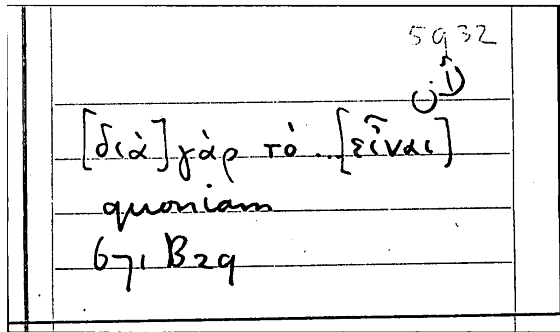 5932
[διὰ] γὰρ τὸ...[εἶναι]
quoniam
671 B29